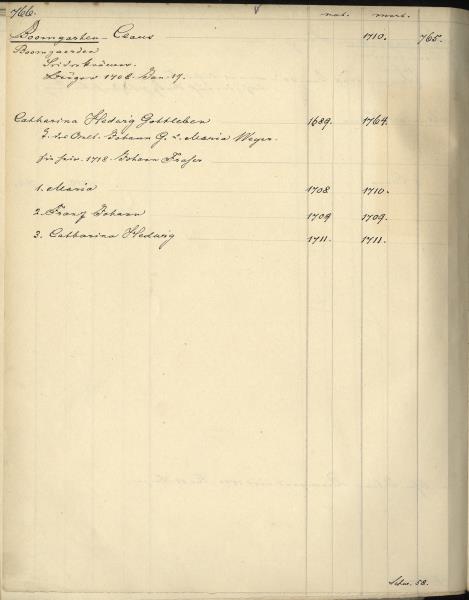 766.
nat. mort.
Boomgarten Claus 1710. 765.
Boomgaerden
Bürger 1708 Jan. 17.
Catharina Hedwig Gottleben 1689. 1764.
T. des Johann G. u. Maria Meyer.
1718 Johann Fraser
1. Maria 1708 1710.
2. Franz Johann 1709 1709.
3. Catharina Hedwig 1711. 1711.
58.